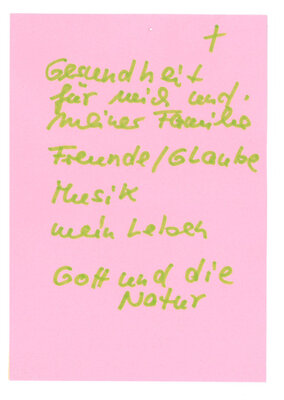 +
Gesundheit
für mich und
meiner Familie
Freunde/Glaube
Musik
mein Leben
Gott und die
Natur